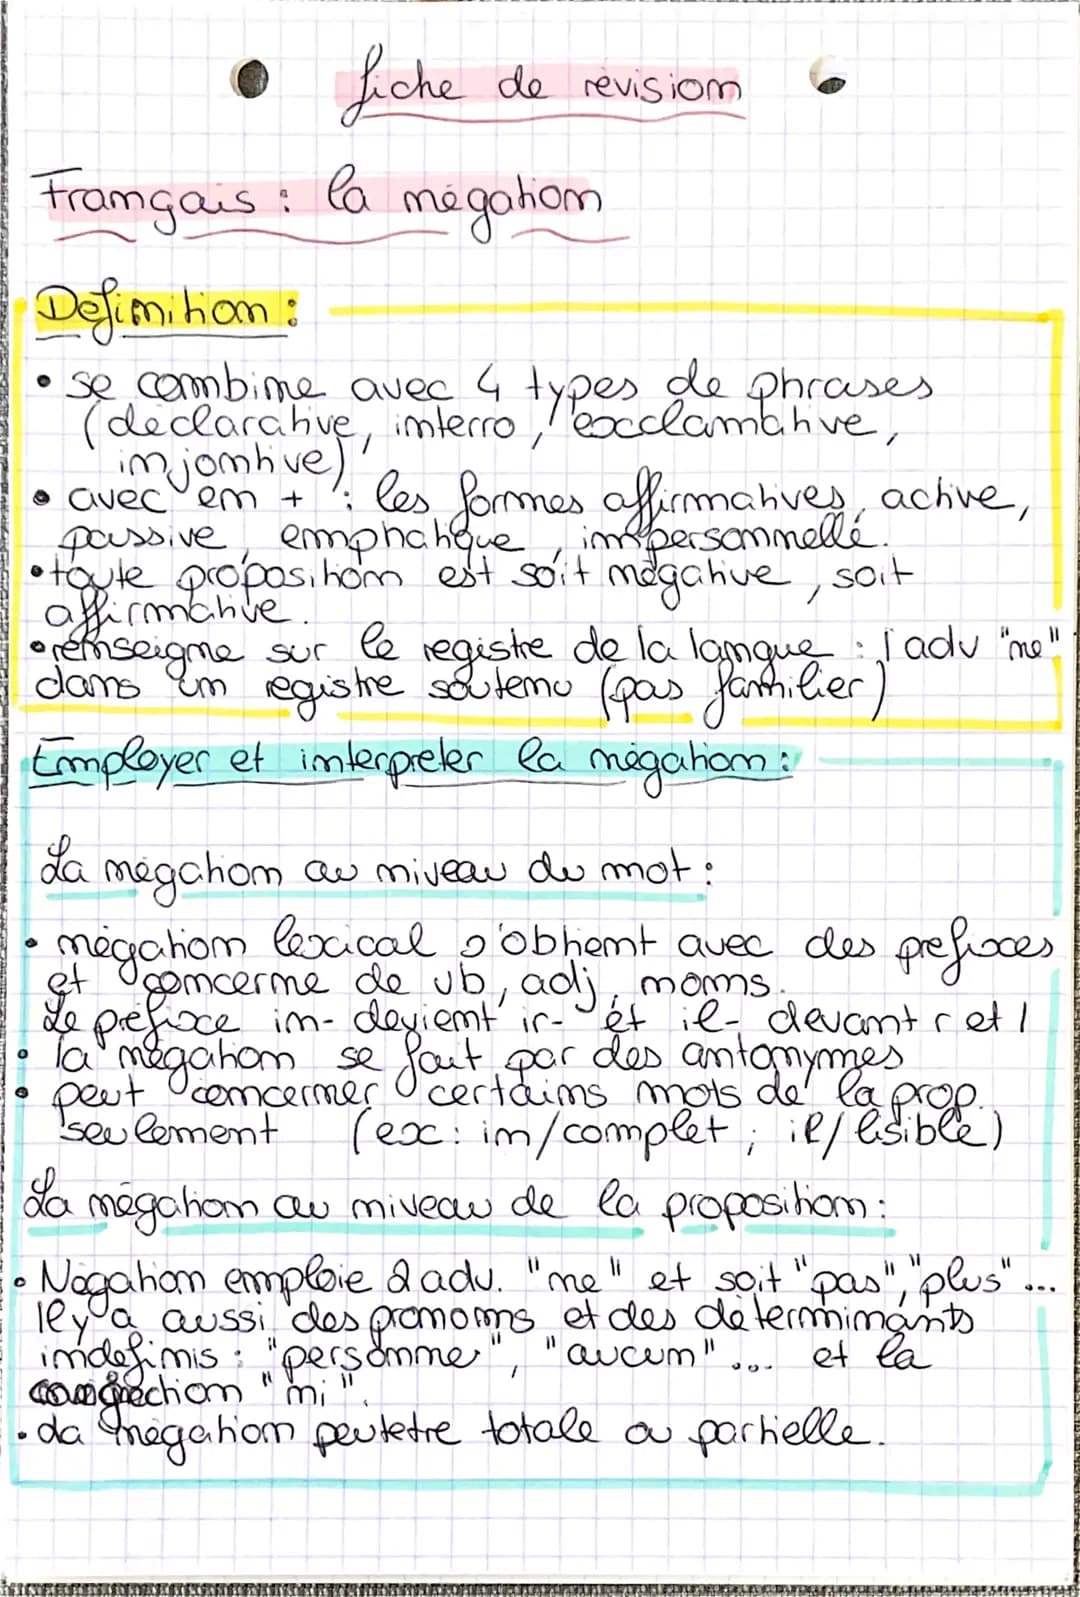 fiche de révision
Français : la négation
Définition :
• se combine avec 4 types de phrases
(déclarative, interro, exclamative,
injontive)
• avec en + : les formes affirmatives, active,
passive, emphatique, impersonnelle.
• toute proposition est soit négative, soit
affirmative.
• renseigne sur le registre de la langue : l'adv "ne"
dans un registre soutenu (pas familier)
Employer et interpréter la négation :
La négation au niveau du mot :
• négation lexical s'obtient avec des préfixes
et concerne de vb, adj, noms.
Le préfixe in- devient ir- et il- devant r et l
• la négation se fait par des antonymes
• peut concerner certains mots de la prop.
seulement (ex : in/complet ; il/lisible)
La négation au niveau de la proposition :
• Négation emploie 2 adv. "ne" et soit "pas", "plus"...
Il y a aussi des pronoms et des déterminants
indéfinis : "personne", "aucun"... et la
conjonction "ni".
• La négation peut être totale ou partielle.